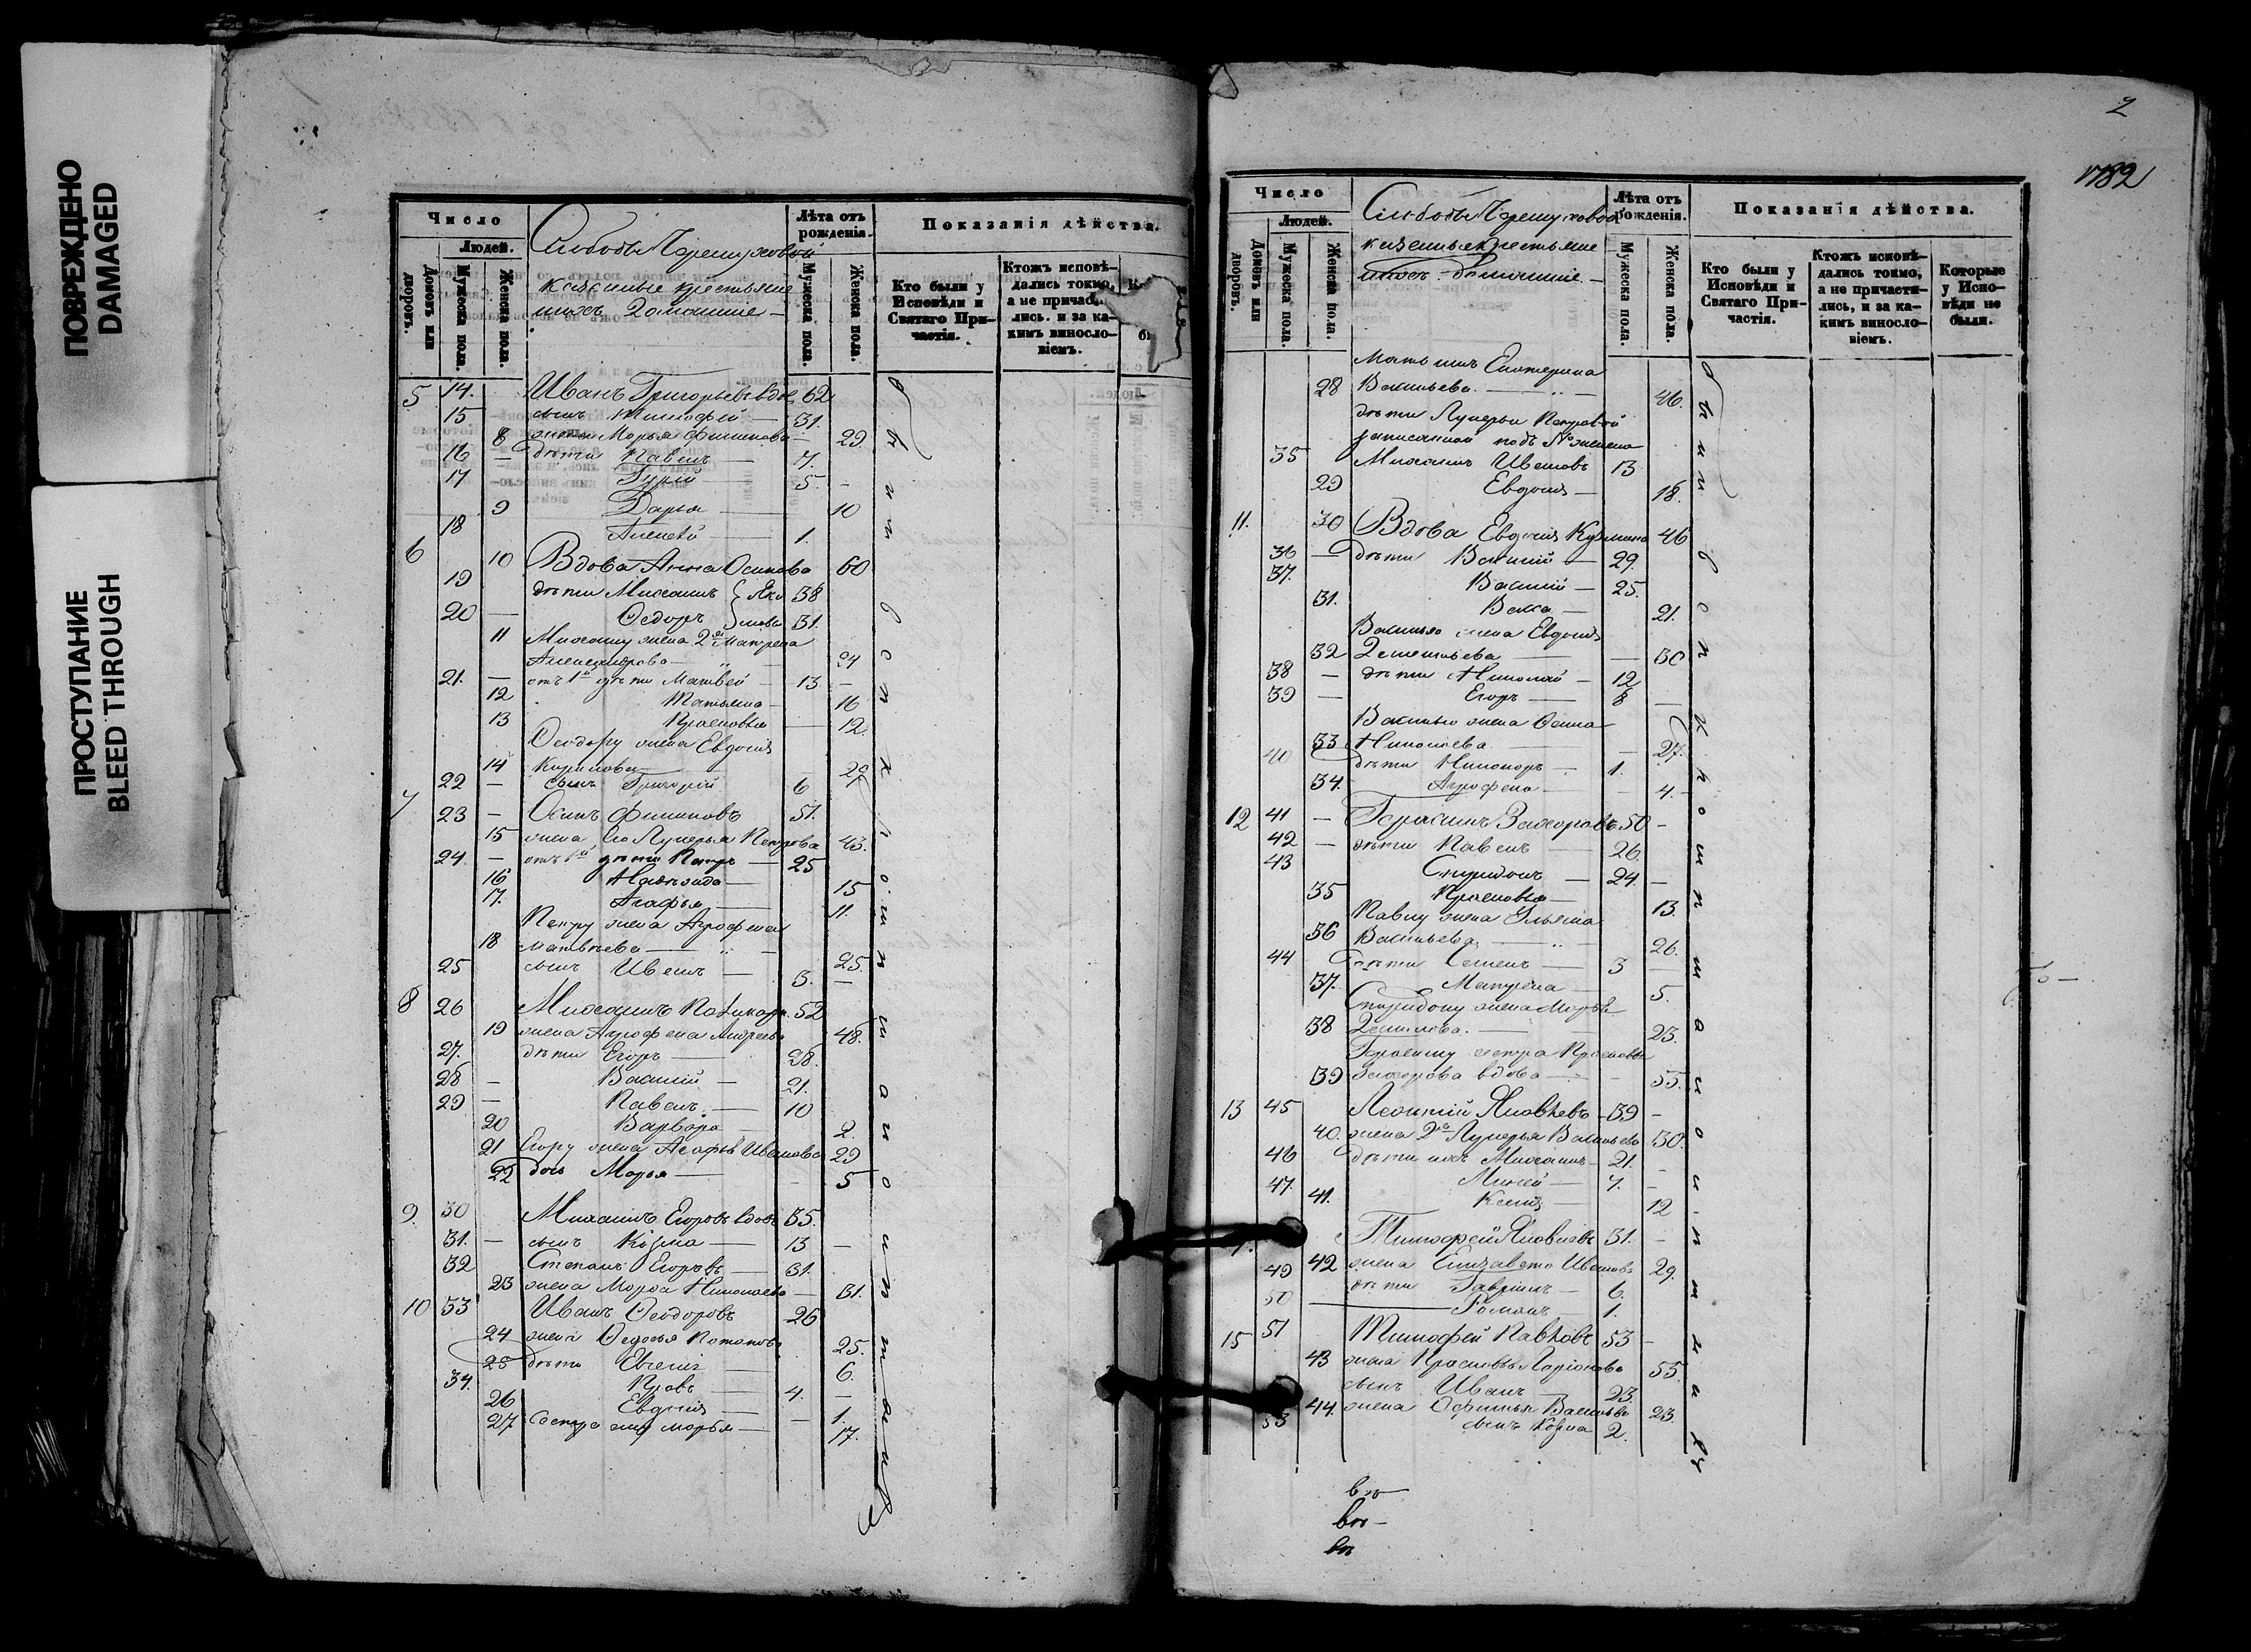 ПОВРЕЖДЕНО
DAMAGED
ПРОСТУПАНИЕ
BLEED THROUGH
Число
Людей.
Домовъ или дворовъ.
Мужеска пола.
Женска пола.
Слободы Черемуховой
казенные крестьяне
ихъ Домашніе —
Лѣта отъ рожденія.
Мужеска пола.
Женска пола.
Показанія дѣйства.
Кто были у Исповѣди и Святаго Причастія.
Ктожъ исповѣдались токмо, а не причас лись. и за какимъ винословіемъ.
5 14. Иванъ Григорьевъ вдов 62
15 сынъ Тимофей — 31.
8 жена Марья Филипова — 29.
16 — дѣти Павелъ — 7.
17 Гурій — 5. -
9 Дарья — 10
18 Алексѣй — 1.
6 10 Вдова Анна Осипова 60
19 дѣти Михаилъ Яко 38
20 — Ѳедоръ влевы 31.
11 Михаилу жена 2я Матрена
Александрова — 24
21. — отъ 1й дѣти Матвей — 13 —
12 Татьяна — 16
13 Прасковья — 12.
Ѳеодору жена Евдокія
14 Кирилова — 29
22 — сынъ Григорій 6
7 23 — Осипъ Филиповъ 51.
15 жена его Лукерья Петрова 43.
24. — отъ 1й дѣти Петръ — 25
16 Надежда — 15
17. Агафья — 11.
Петру жена Агрофена
18 Матвѣева — 25.
25 сынъ Иванъ — 3. —
8 26 Михаилъ Поликарп. 52
19 жена Агрофена Андреева 48.
27. дѣти Егоръ — 28.
28 — Василій — 21.
29 — Павелъ — 10
20 Варвара — 2.
21 Егору жена Агафья Иванова 29
22 дочь Марья — 5
9. 30 Михаилъ Егоровъ вдовъ 35.
31. — сынъ Козма — 13 —
32 Степанъ Егоровъ — 31.
23 жена Марѳа Николаева — 31.
10 33 Иванъ Ѳеодоровъ 26
24 жена Ѳедосья Потапова 25.
25 дѣти Евгенія — 6.
34. Провъ — 4. —
26 Евдокія — — 1.
27 Сестра ему Марья — 17.
были всѣ
2
1782
Число
Людей.
Домовъ или дворовъ.
Мужеска пола.
Женска пола.
Слободы Черемуховой
казенные крестьяне
ихъ домашніе —
Лѣта отъ рожденія.
Мужеска пола.
Женска пола.
Показанія дѣйства.
Кто были у Исповѣди и Святаго Причастія.
Ктожъ исповѣдались токмо, а не причастились, и за какимъ винословіемъ.
Которые у Исповѣди не были.
Мать ихъ Екатерина
28 Васильева. — 46.
дѣти Лукерьи Петровой
записанной подъ №
35 Михаилъ Ивановъ 13
29 Евдокія — 18.
11. 30 Вдова Евдокія Кузмина 46
36 — дѣти Василій — 29.
37. Василій — 25.
31. Васса — 21.
Василью жена Евдокія
32 Дементьева — 30
38 — дѣти Николай — 12
39 — Егоръ — 8
Василью жена
33 Николаева — 27.
40 дѣти Никаноръ — 1.
34. Агрофена — 4.
12 41 — Герасимъ Захаровъ 50 —
42 — дѣти Павелъ — 26.
43 Спиридонъ — 24. —
35 Прасковья — 13.
Павлу жена Ульяна
36 Васильева — 26.
44 дѣти Семенъ — 3 —
37. Матрена — 5.
Спиридону жена Марья
38 Данилова. — 23.
Герасиму сестра Прасковья
39 Захарова вдова — 55.
13 45 Леонтій Яковлевъ — 39 —
40. жена 2я Лукерья Васильева 30.
46 дѣти ихъ Михаилъ — 21. —
47. Мокей — 7. —
41. Ксенія — 12
Тимофей Яковлевъ 31. —
49 42 жена Елизавета Иванова 29.
дѣти Гавріилъ — 6.
50 Романъ — 1.
15 51 Тимофей Павловъ 53 —
43 жена Прасковья Ларіонова 55.
сынъ Иванъ — 23.
44. жена Ѳфимья Васильева 23.
53 сынъ Козма 2.
были всѣ